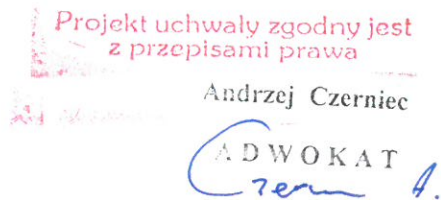 Projekt uchwały zgodny jest
z przepisami prawa
Andrzej Czerniec
ADWOKAT